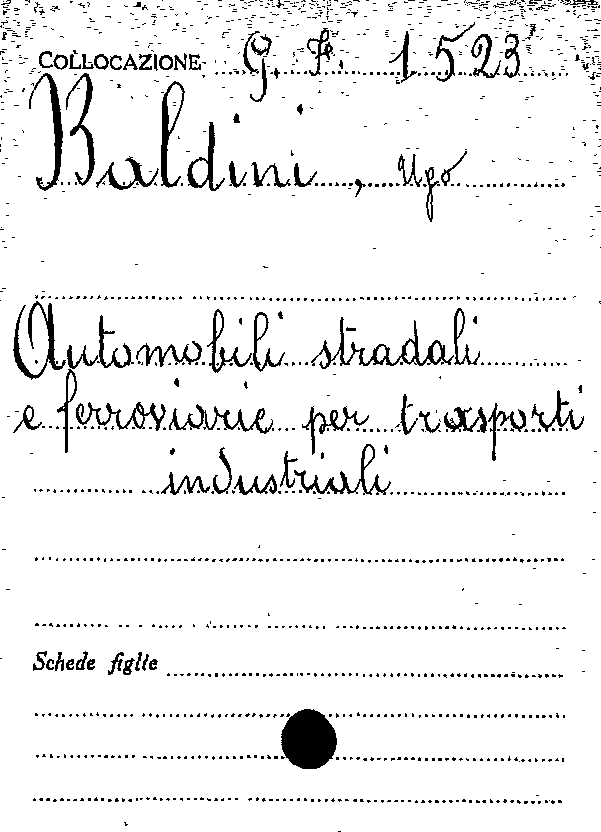 COLLOCAZIONE G. Fe. 1523
Baldini, Ugo
Automobili stradali
e ferroviarie per trasporti
industriali
Schede figlie